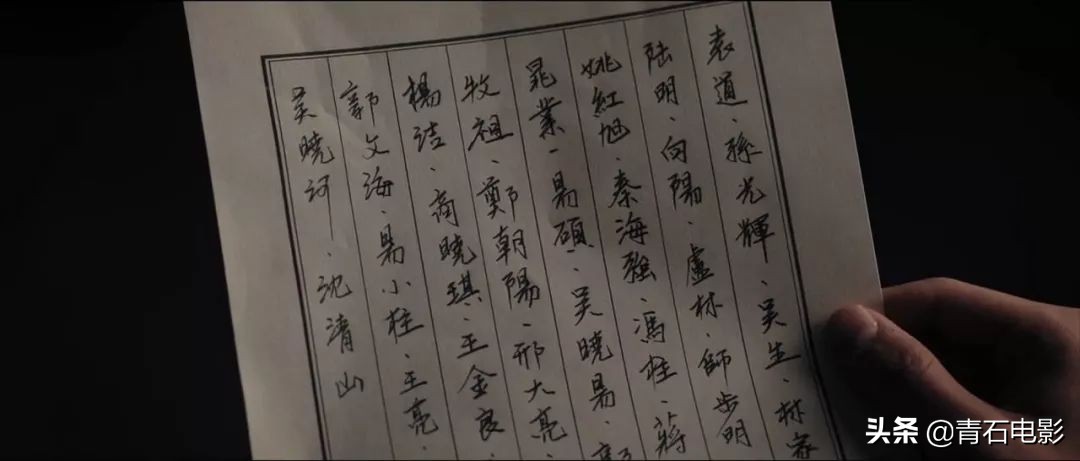 袁道、孫光輝、吴生、林
陆明、向陽、盧林、師步明
姚紅旭、秦海強、馮柱、蔣
晁業、易碩、吴曉易、
牧祖、鄭朝陽、邢大亮、
楊洁、商曉琪、王金良、
郭文海、易小柱、王亮、
吴曉河、沈清山
头条 @青石电影